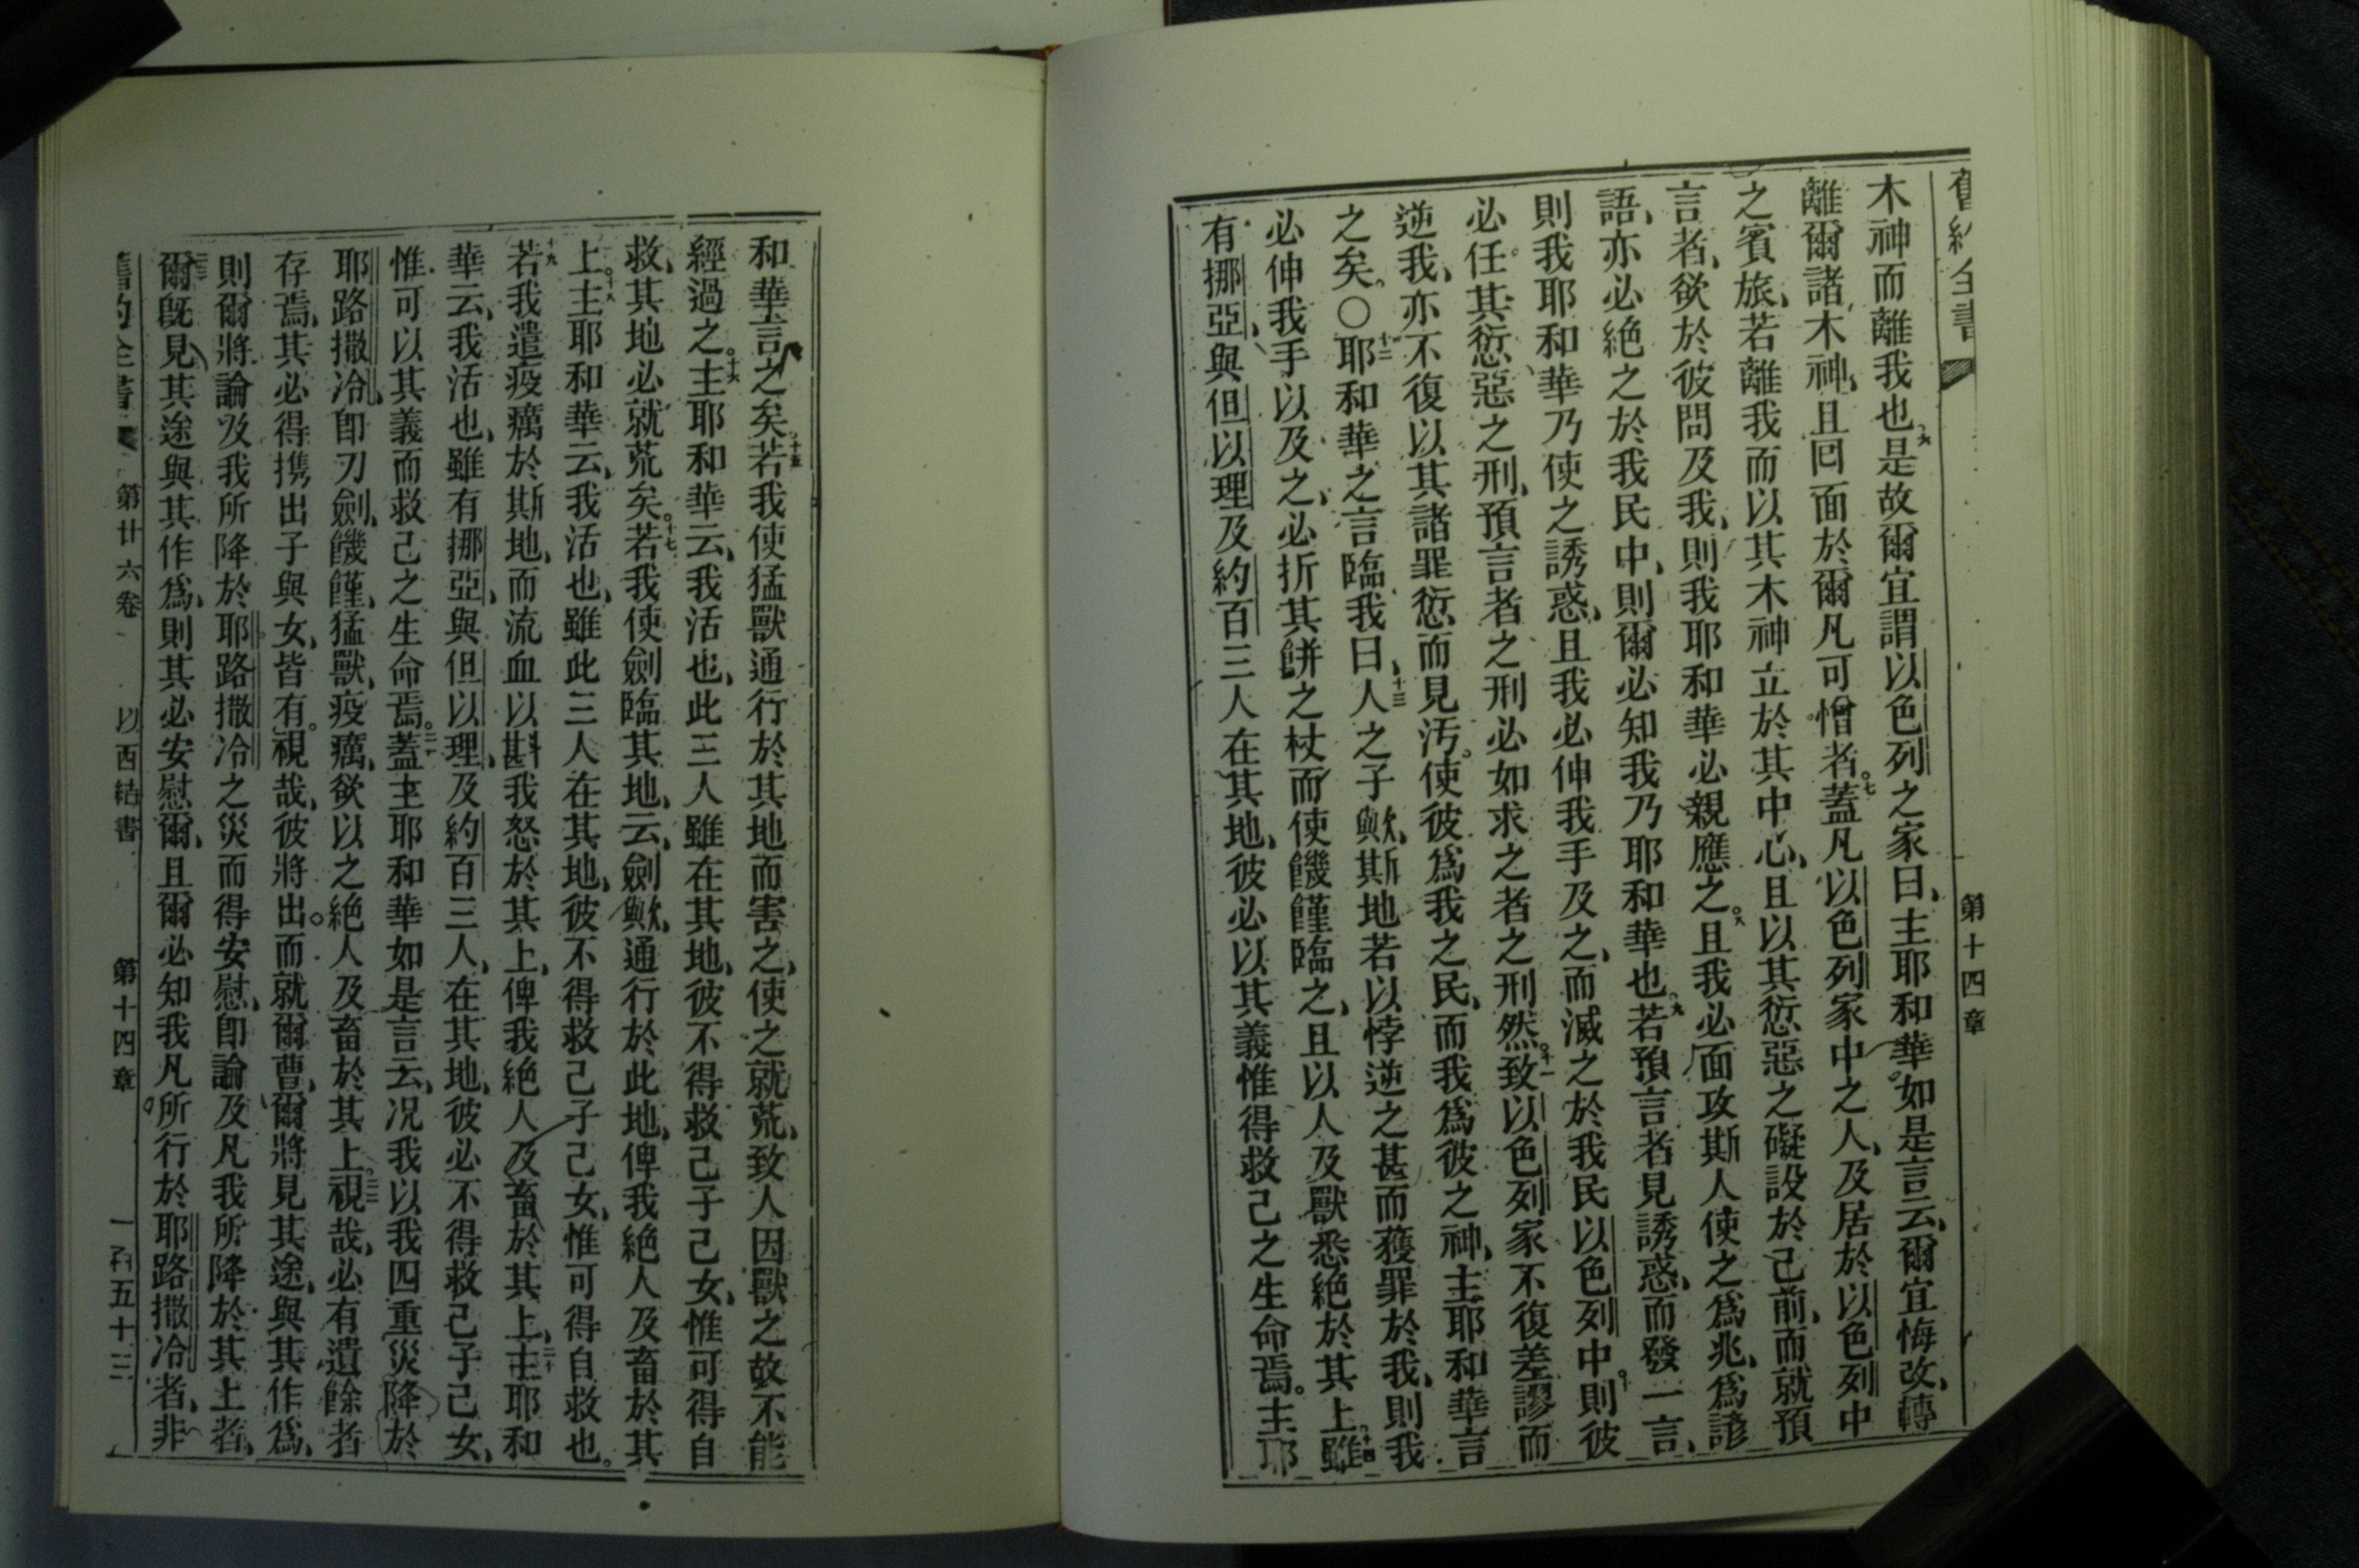 舊約全書
第十四章
木神而離我也六是故爾宜謂以色列之家曰主耶和華如是言云爾宜悔改轉
離爾諸木神且回面於爾凡可憎者七蓋凡以色列家中之人及居於以色列中
之賓旅若離我而以其木神立於其中心且以其愆惡之礙設於己前而就預
言者欲於彼問及我則我耶和華必親應之八且我必面攻斯人使之爲兆爲諺
語亦必絕之於我民中則爾必知我乃耶和華也九若預言者見誘惑而發一言
則我耶和華乃使之誘惑且我必伸我手及之而滅之於我民以色列中十則彼
必任其愆惡之刑預言者之刑必如求之者之刑然十一致以色列家不復差謬而
逆我亦不復以其諸罪愆而見污使彼爲我之民而我爲彼之神主耶和華言
之矣○十二耶和華之言臨我曰十三人之子歟斯地若以悖逆之甚而獲罪於我則我
必伸我手以及之必折其餅之杖而使饑饉臨之且以人及獸悉絕於其上十四雖
有挪亞與但以理及約百三人在其地彼必以其義惟得救己之生命焉主耶
和華言之矣十五若我使猛獸通行於其地而害之使之就荒致人因獸之故不能
經過之十六主耶和華云我活也此三人雖在其地彼不得救己子己女惟可得自
救其地必就荒矣十七若我使劍臨其地云劍歟通行於此地俾我絕人及畜於其
上十八主耶和華云我活也雖此三人在其地彼不得救己子己女惟可得自救也
十九若我遣疫癘於斯地而流血以斟我怒於其上俾我絕人及畜於其上二十主耶和
華云我活也雖有挪亞與但以理及約百三人在其地彼必不得救己子己女
惟可以其義而救己之生命焉二一蓋主耶和華如是言云况我以我四重災降於
耶路撒冷卽刃劍饑饉猛獸疫癘欲以之絕人及畜於其上二二視哉必有遺餘者
存焉其必得攜出子與女皆有視哉彼將出而就爾曹爾將見其途與其作爲
則爾將論及我所降於耶路撒冷之災而得安慰卽論及凡我所降於其上者
二三爾既見其途與其作爲則其必安慰爾且爾必知我凡所行於耶路撒冷者非
舊約全書
第廿六卷
以西結書
第十四章
一千五十三